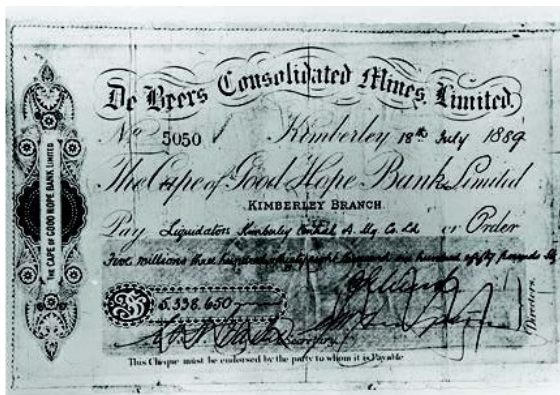 De Beers Consolidated Mines, Limited.
No 5050
Kimberley 18th July 1889
The Cape of Good Hope Bank Limited
KIMBERLEY BRANCH.
Pay Liquidators Kimberley Central D. Mg. Co. Ld or Order
Five millions three hundred thirty eight thousand six hundred & fifty pounds Stg
£ 5,338,650
Directors.
Secretary.
This Cheque must be endorsed by the party to whom it is Payable
THE CAPE OF GOOD HOPE BANK LIMITED